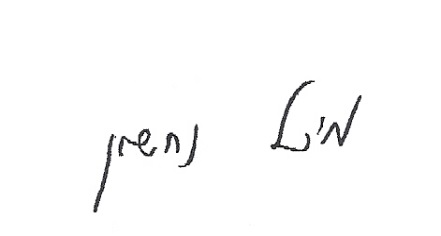 מיכל נחשון